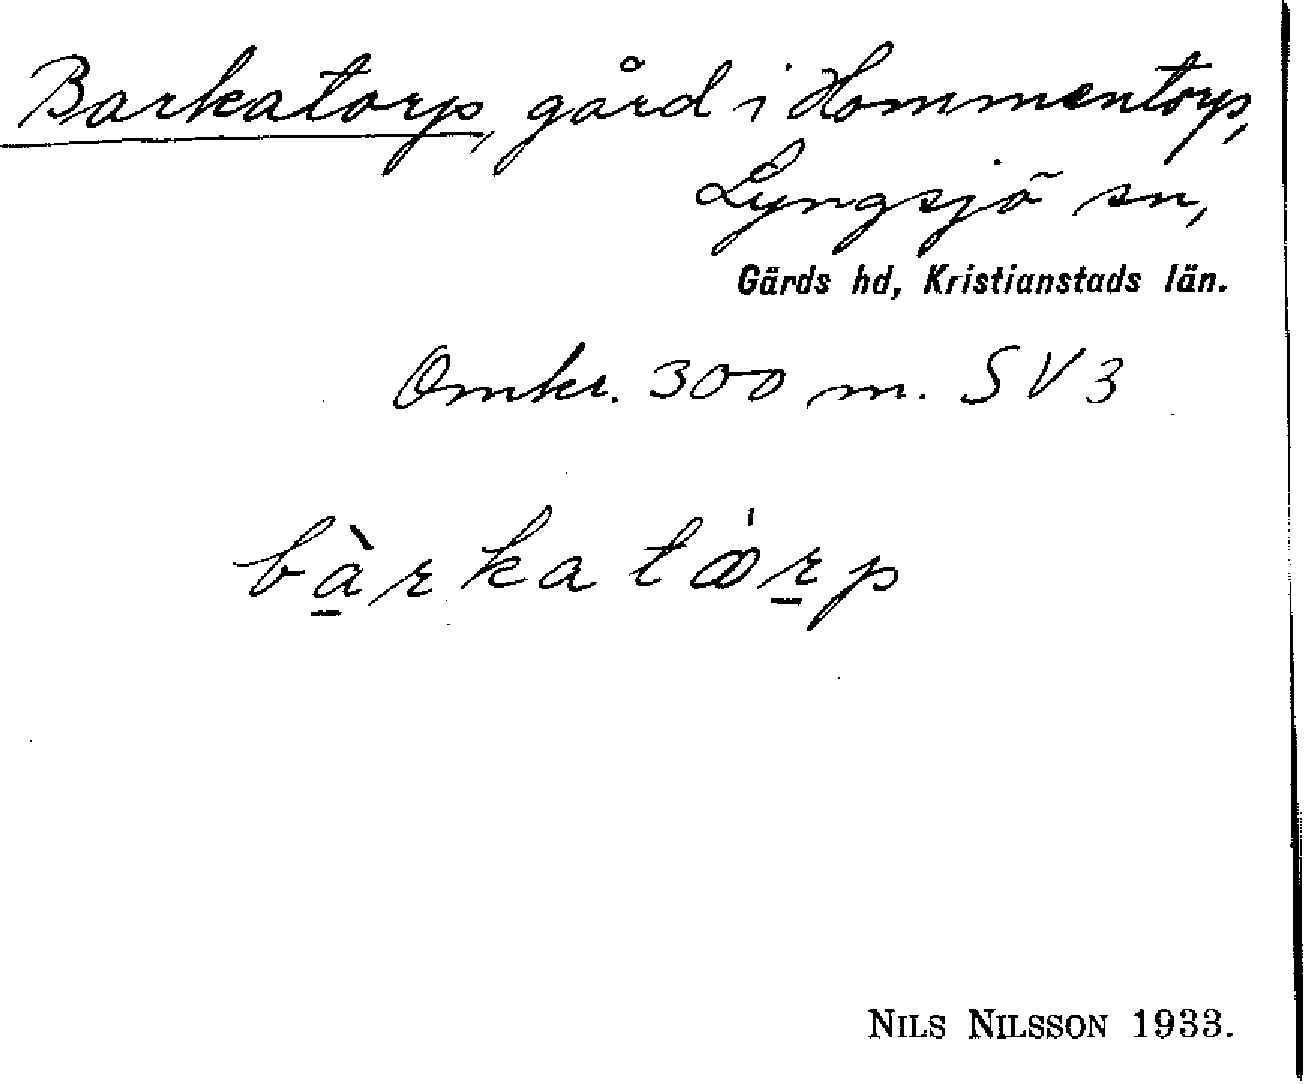 Barkatorp, gård i Hommentorp,
Lyngsjö sn,
Gärds hd, Kristianstads län.
Omkr. 300 m. SV 3
bà̱rkatå̍r̠p
NILS NILSSON 1933.